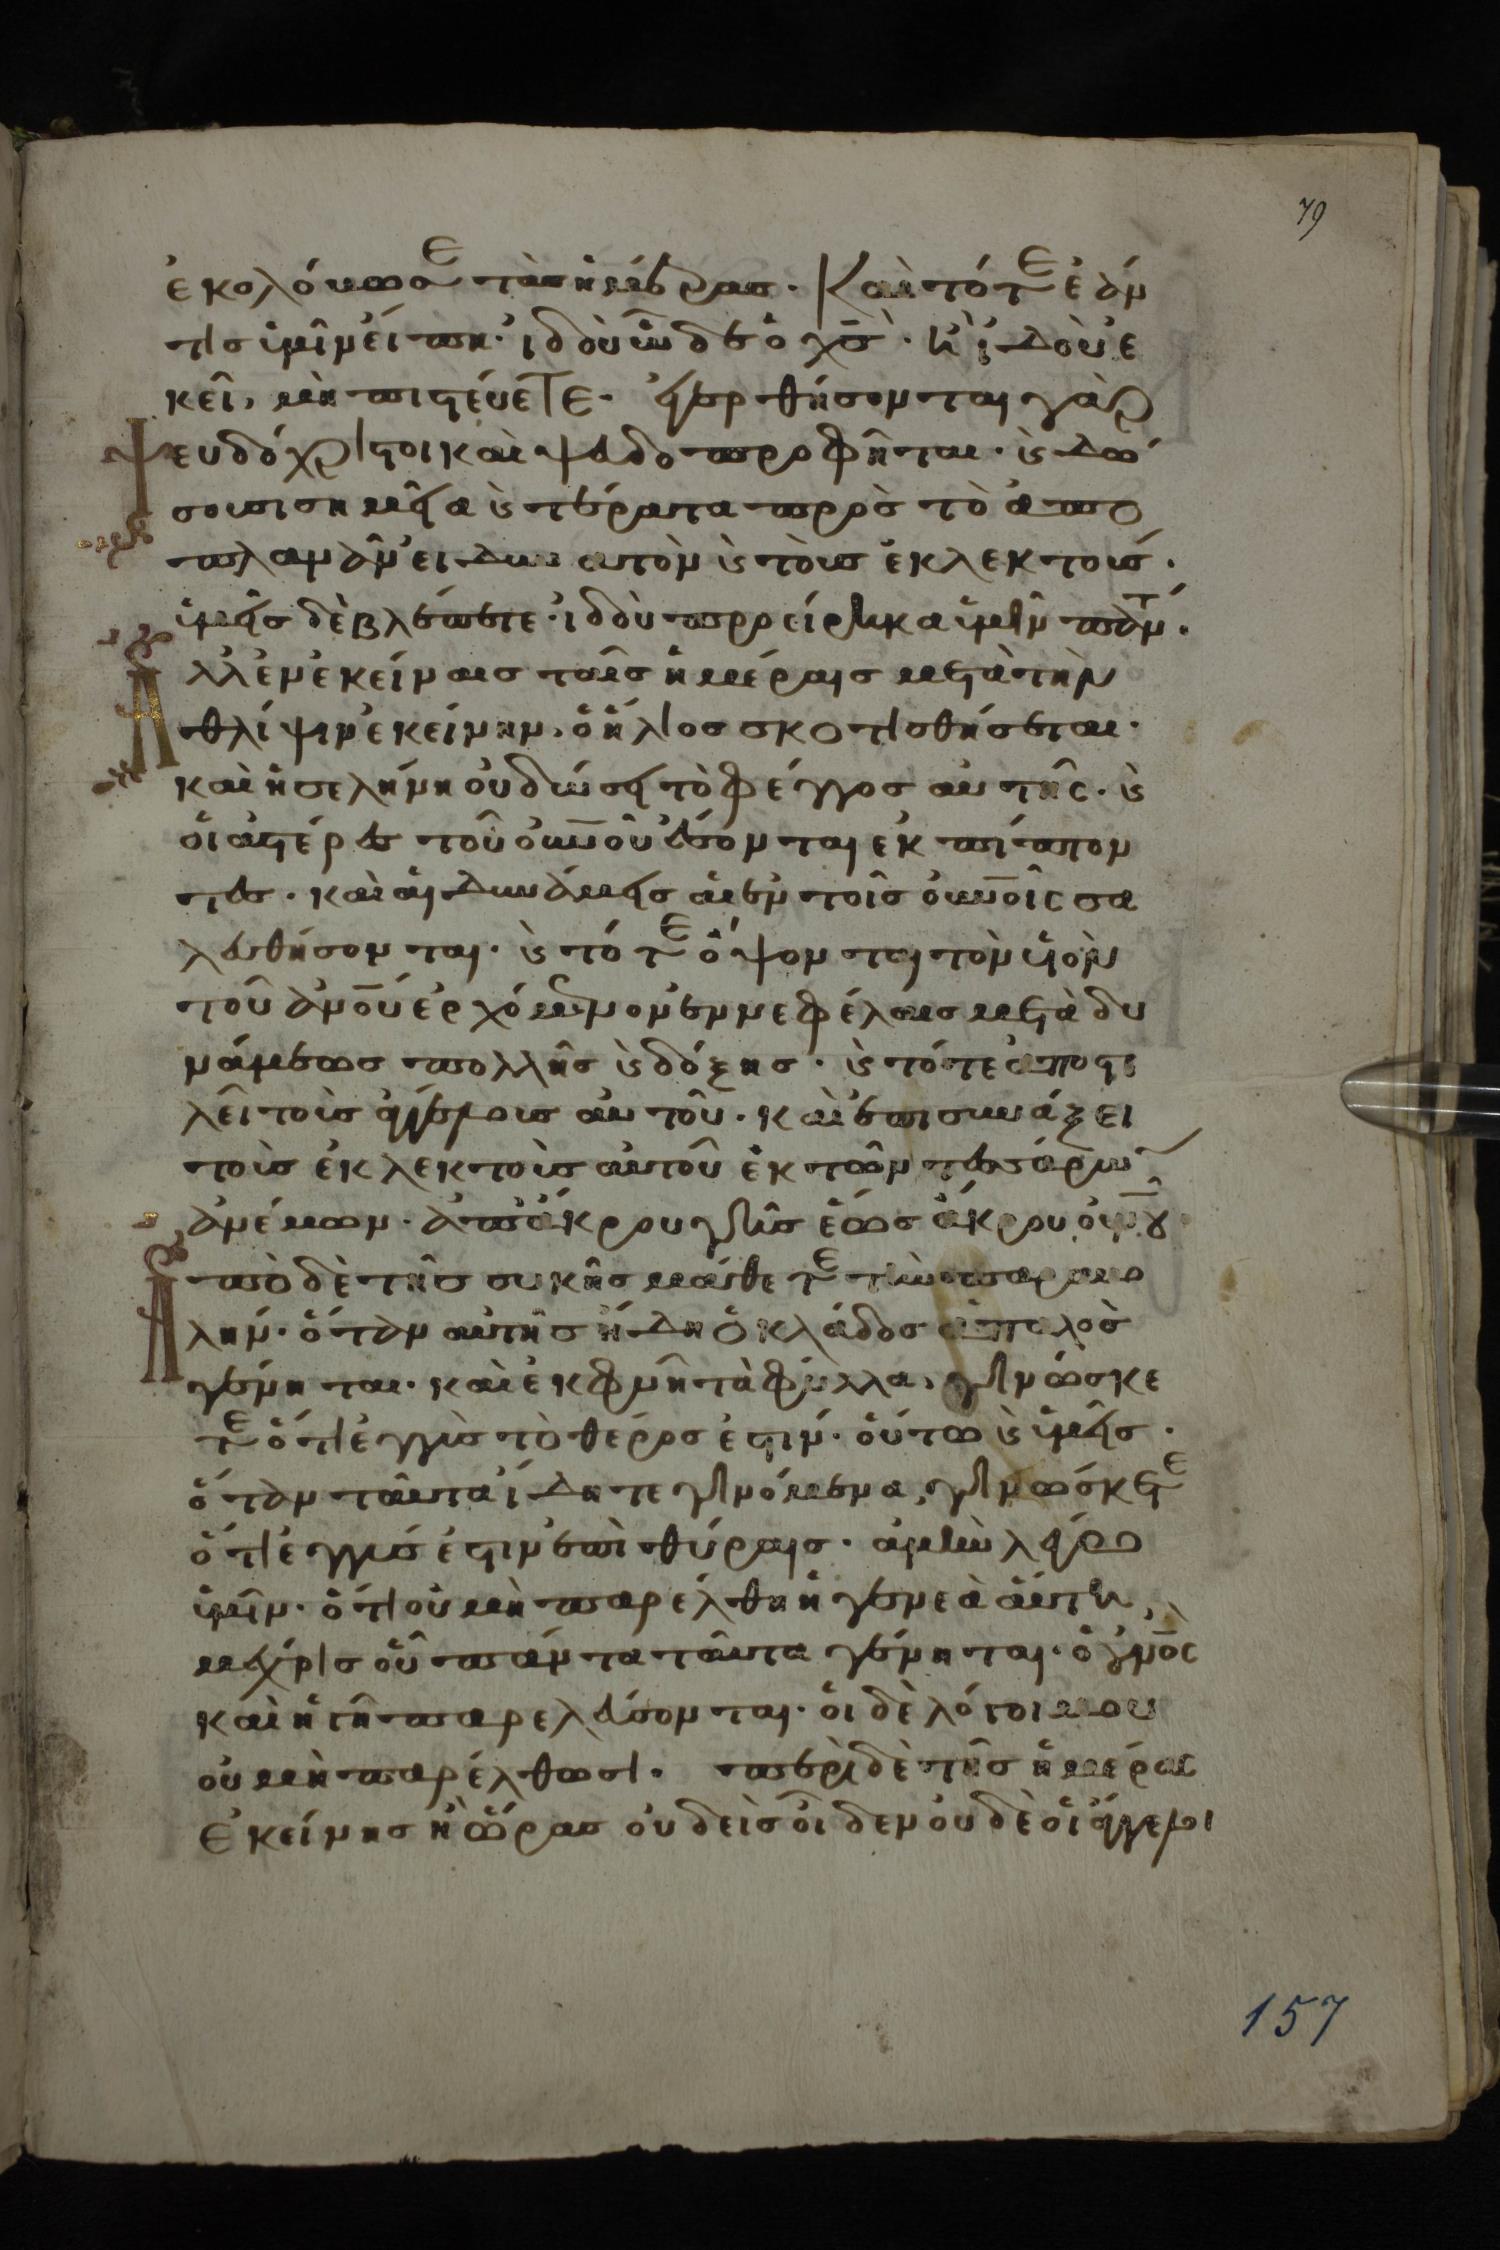 79
ἐκολόβωσε τὰς ἡμέρας. Καὶ τότε ἐάν
τις ὑμῖν εἴπη. ἰδοὺ ὧδε ὁ χς̅. ἢ ἰδοὺ ἐ
κεῖ, μὴ πιστεύετε. ἐγερθήσονται γὰρ
ψευδόχριστοι καὶ ψευδοπροφῆται. καὶ δώ
σουσι σημεῖα καὶ τέρατα πρὸς τὸ ἀπο
πλανᾶν εἰ δυνατὸν καὶ τοὺς ἐκλεκτούς.
ὑμεῖς δὲ βλέπετε. ἰδοὺ προείρηκα ὑμῖν πάντ.
Ἀλλ' ἐν ἐκείναις ταῖς ἡμέραις μετὰ τὴν
θλίψιν ἐκείνην, ὁ ἥλιος σκοτισθήσεται.
καὶ ἡ σελήνη οὐ δώσει τὸ φέγγος αὐτῆς. καὶ
οἱ ἀστέρες τοῦ οὐν̅οῦ ἔσονται ἐκπίπτον
τες. καὶ αἱ δυνάμεις αἱ ἐν τοῖς οὐν̅οῖς σα
λευθήσονται. καὶ τότε ὄψονται τὸν υἱὸν
τοῦ ἀν̅ου ἐρχόμενον ἐν νεφέλαις μετὰ δυ
νάμεως πολλῆς καὶ δόξης. καὶ τότε ἀποστε
λεῖ τοὺς ἀγγέλους αὐτοῦ. καὶ ἐπισυνάξει
τοὺς ἐκλεκτοὺς αὐτοῦ ἐκ τῶν τεσσάρων
ἀνέμων. ἀπ' ἄκρου γῆς ἕως ἄκρου οὐν̅οῦ
Ἀπὸ δὲ τῆς συκῆς μάθετε τὴν παραβο
λήν. ὅταν αὐτῆς ἤδη ὁ κλάδος ἁπαλὸς
γένηται. καὶ ἐκφύῃ τὰ φύλλα, γινώσκε
τε ὅτι ἐγγὺς τὸ θέρος ἐστίν. οὕτω καὶ ὑμεῖς.
ὅταν ταῦτα ἴδητε γινόμενα, γινώσκετε
ὅτι ἐγγύς ἐστιν ἐπὶ θύραις. ἀμὴν λέγω
ὑμῖν. ὅτι οὐ μὴ παρέλθη ἡ γενεὰ αὕτη,
μέχρις οὗ πάντα ταῦτα γένηται. ὁ οὐν̅ος
καὶ ἡ γῆ παρελεύσονται. οἱ δὲ λόγοι μου
οὐ μὴ παρέλθωσι. περὶ δὲ τῆς ἡμέρας
ἐκείνης ἢ ὥρας οὐδεὶς οἶδεν οὐδὲ οἱ ἄγγελοι
157